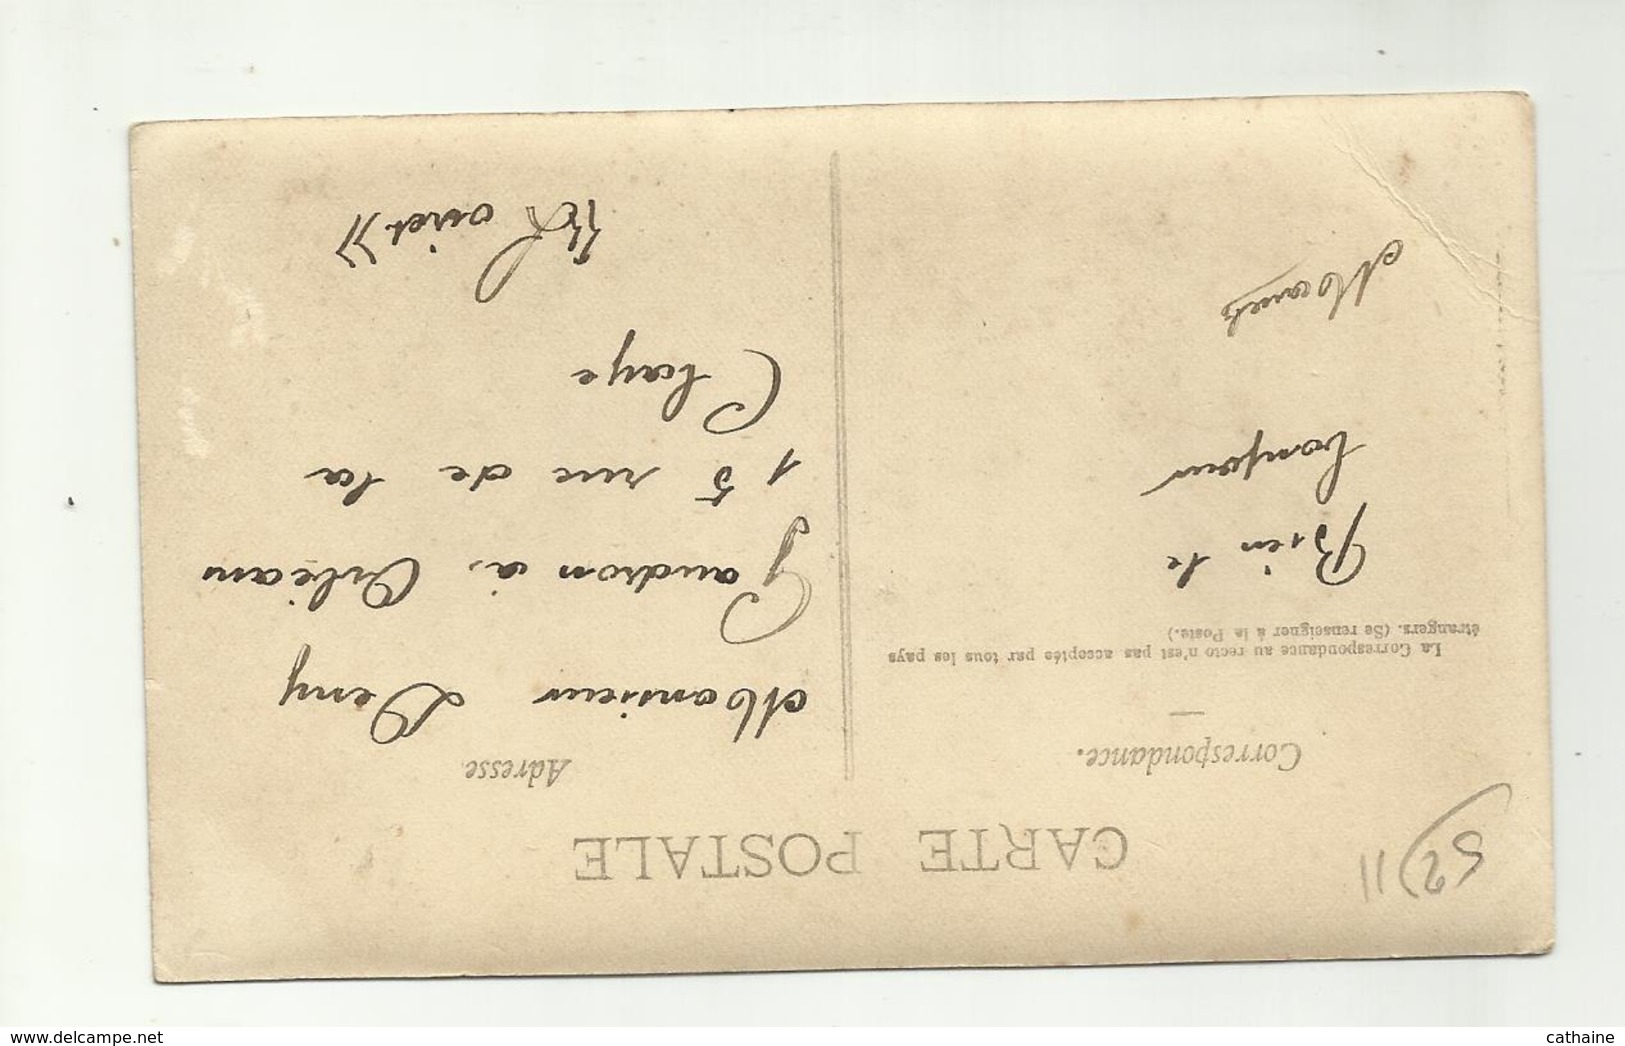 CARTE POSTALE
Correspondance.
La Correspondance au recto n'est pas acceptée par tous les pays
étrangers. (Se renseigner à la Poste.)
Bien le
bonjour
Adresse.
Monsieur
Gaudron à Orléans
15 rue de la
Claye
Loiret))
52) 11
cathaine